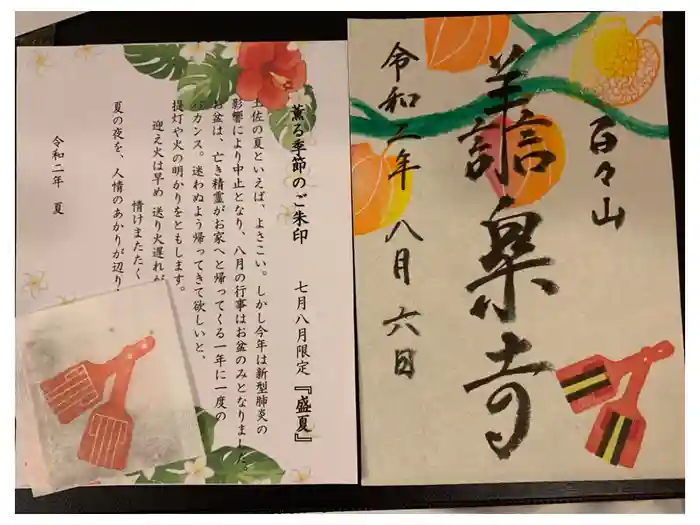 百々山
譱楽寺
令和二年八月六日
薫る季節のご朱印　七月八月限定『盛夏』
土佐の夏といえば、よさこい。しかし今年は新型肺炎の
影響により中止となり、八月の行事はお盆のみとなりました。
お盆は、亡き精霊がお家へと帰ってくる一年に一度の
バカンス。迷わぬよう帰ってきて欲しいと、
提灯や火の明かりをともします。
迎え火は早め 送り火遅れが
情けまたたく
夏の夜を、人情のあかりが辺り
令和二年　夏